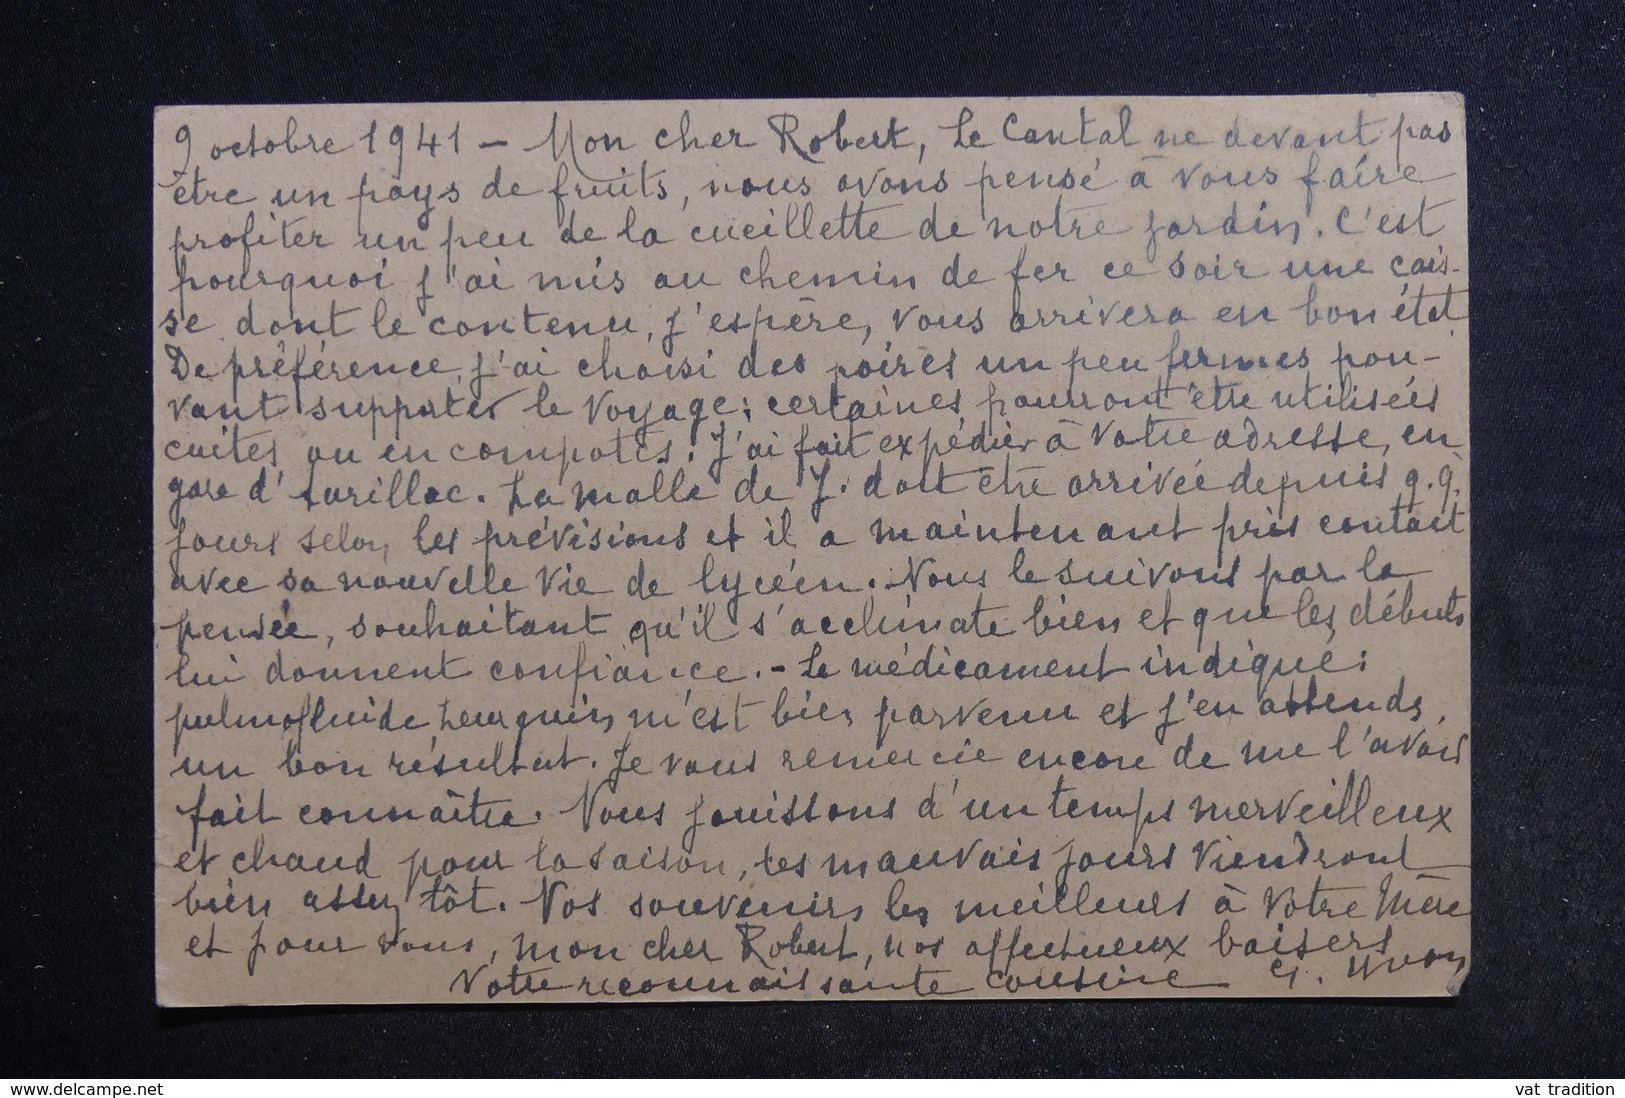 9 octobre 1941 — Mon cher Robert, Le Cantal ne devant pas
être un pays de fruits, nous avons pensé à vous faire
profiter un peu de la cueillette de notre jardin. C'est
pourquoi j'ai mis au chemin de fer ce soir une cais-
se dont le contenu, j'espère, vous arrivera en bon état.
De préférence, j'ai choisi des poires un peu fermes pou-
vant supporter le voyage; certaines pourront être utilisées
cuites ou en compotes. J'ai fait expédier à votre adresse, en
gare d'Aurillac. La malle de J. doit être arrivée depuis q.q.
jours selon les prévisions et il a maintenant pris contact
avec sa nouvelle vie de lycéen. Nous le suivons par la
pensée, souhaitant qu'il s'acclimate bien et que les débuts
lui donnent confiance. - Le médicament indiqué:
pulmofluide m'est bien parvenu et j'en attends
un bon résultat. Je vous remercie encore de me l'avoir
fait connaître. Nous jouissons d'un temps merveilleux
et chaud pour la saison, les mauvais jours viendront
bien assez tôt. Nos souvenirs les meilleurs à votre Mère
et pour vous, mon cher Robert, nos affectueux baisers
Votre reconnaissante cousine G. Yvon
www.delcampe.net
vat tradition